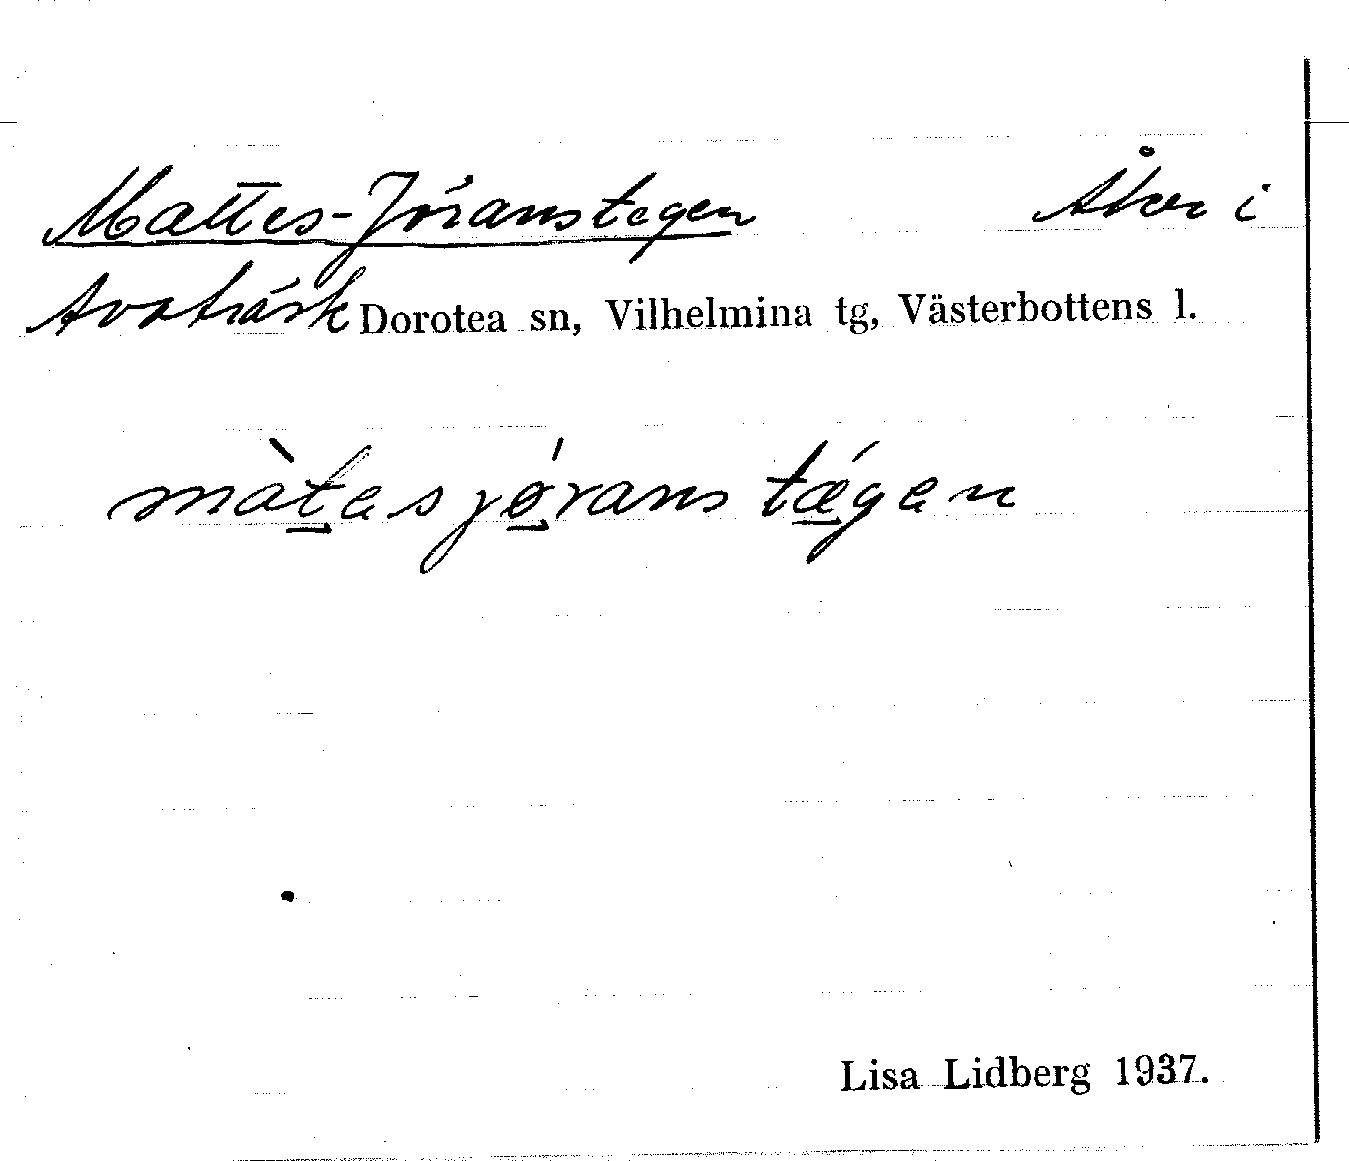 Mattes-Jöranstegen Åker i
Avaträsk Dorotea sn, Vilhelmina tg, Västerbottens l.
màt̲es jǿ̲rans tǽ̲gen
Lisa Lidberg 1937.